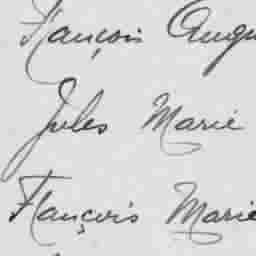 François Augu
Jules Marie
François Marie